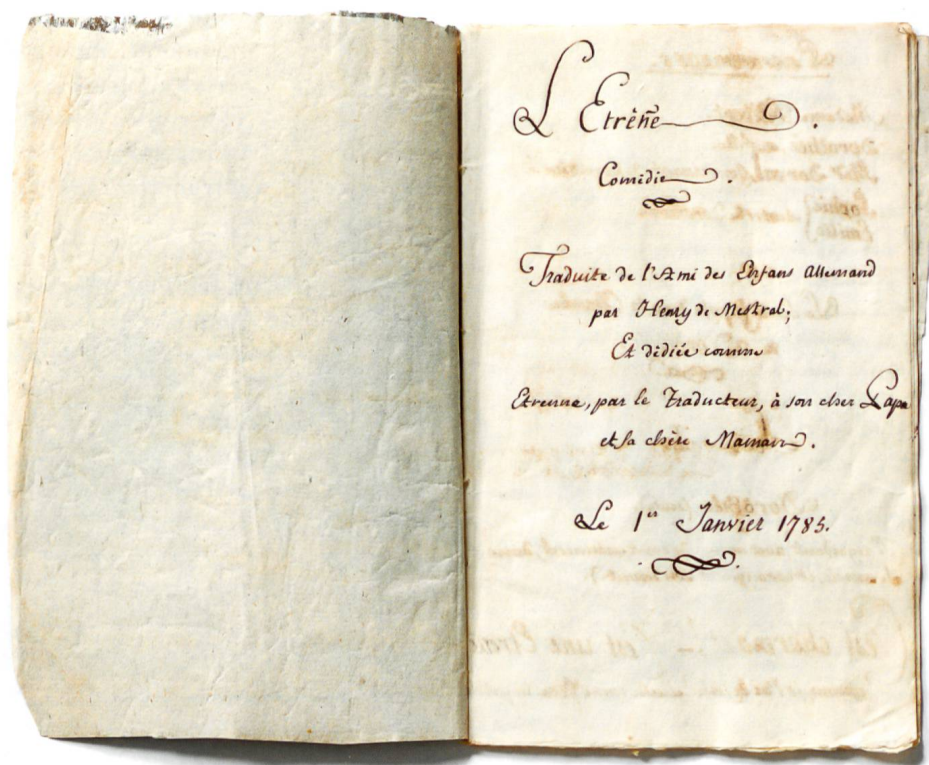 L'Etrên̄e.
Comédie.
Traduite de l'Ami des Enfans Allemand
par Henry de Mestral;
Et dédiée comme
Etrenne, par le Traducteur, à son cher Papa
et sa chère Maman.
Le 1er Janvier 1785.